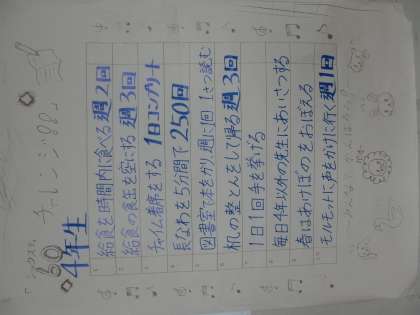 チャレンジ
4年生
給食を時間内に食べる 週2回
給食の食缶を空にする 週3回
チャイム着席をする 1日コンプリート
長なわを5分間で 250回
図書室で本をかり、週に1回 1さつ読む
机の整とんをして帰る 週3回
1日1回手を挙げる
毎日4年以外の先生にあいさつする
春はあけぼのをおぼえる
モルモットに声をかけに行く 週1回